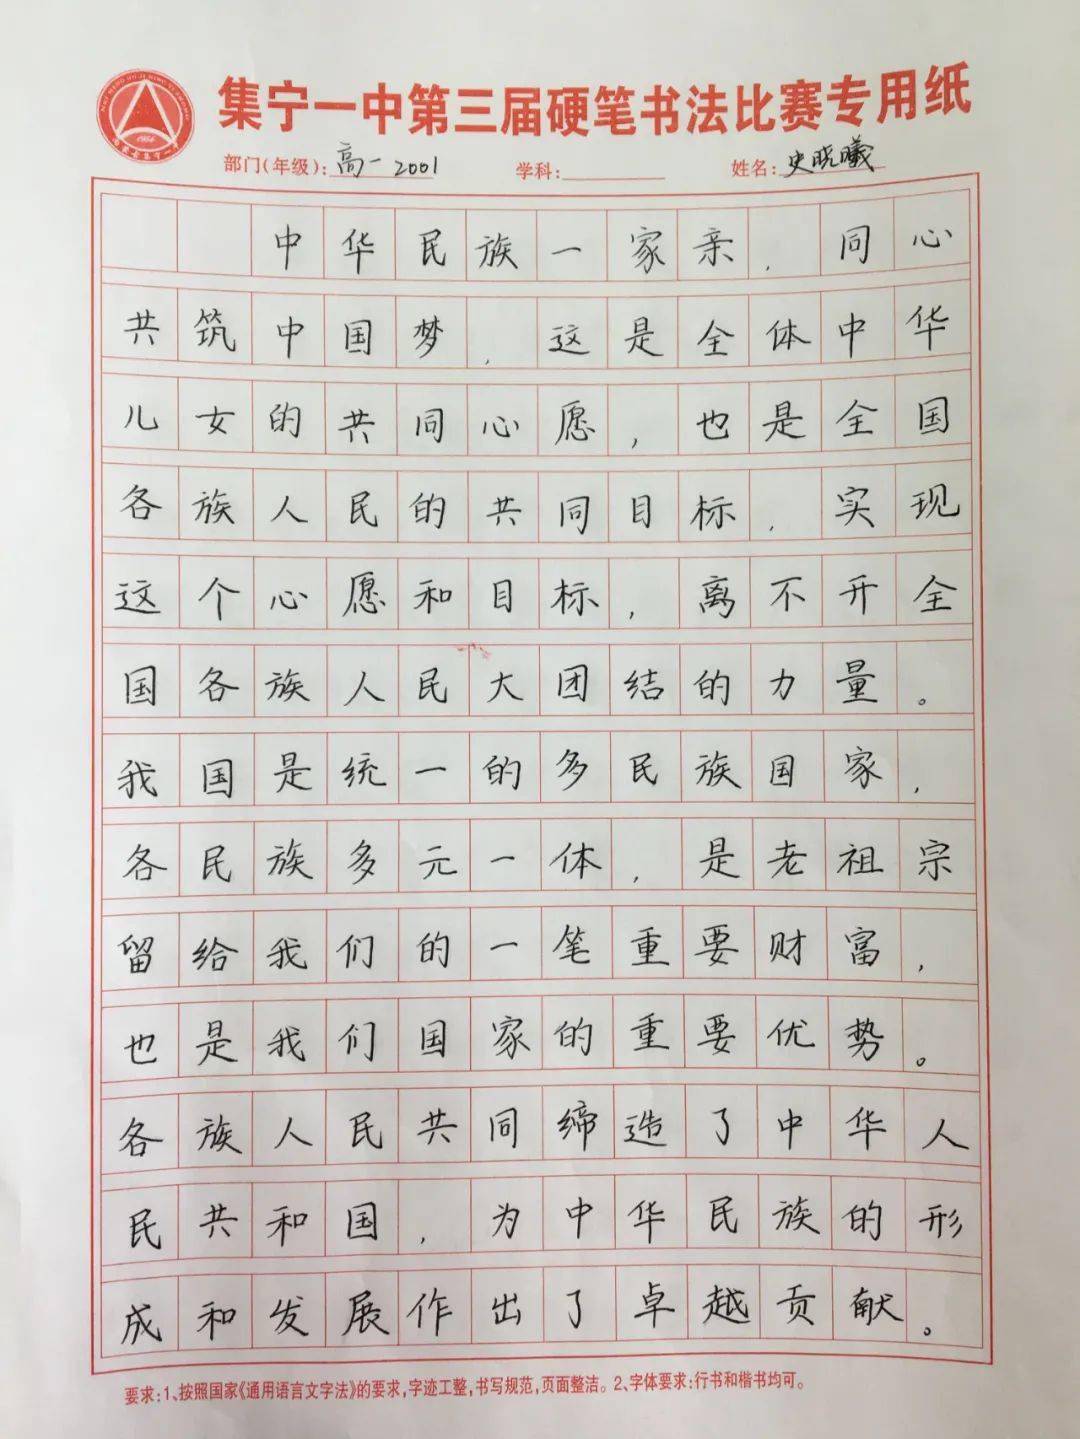 集宁一中第三届硬笔书法比赛专用纸
部门(年级):高一2001 学科: 姓名:史晓曦
中华民族一家亲,同心
共筑中国梦,这是全体中华
儿女的共同心愿,也是全国
各族人民的共同目标,实现
这个心愿和目标,离不开全
国各族人民大团结的力量。
我国是统一的多民族国家,
各民族多元一体,是老祖宗
留给我们的一笔重要财富,
也是我们国家的重要优势。
各族人民共同缔造了中华人
民共和国,为中华民族的形
成和发展作出了卓越贡献。
要求:1、按照国家《通用语言文字法》的要求,字迹工整,书写规范,页面整洁。2、字体要求:行书和楷书均可。